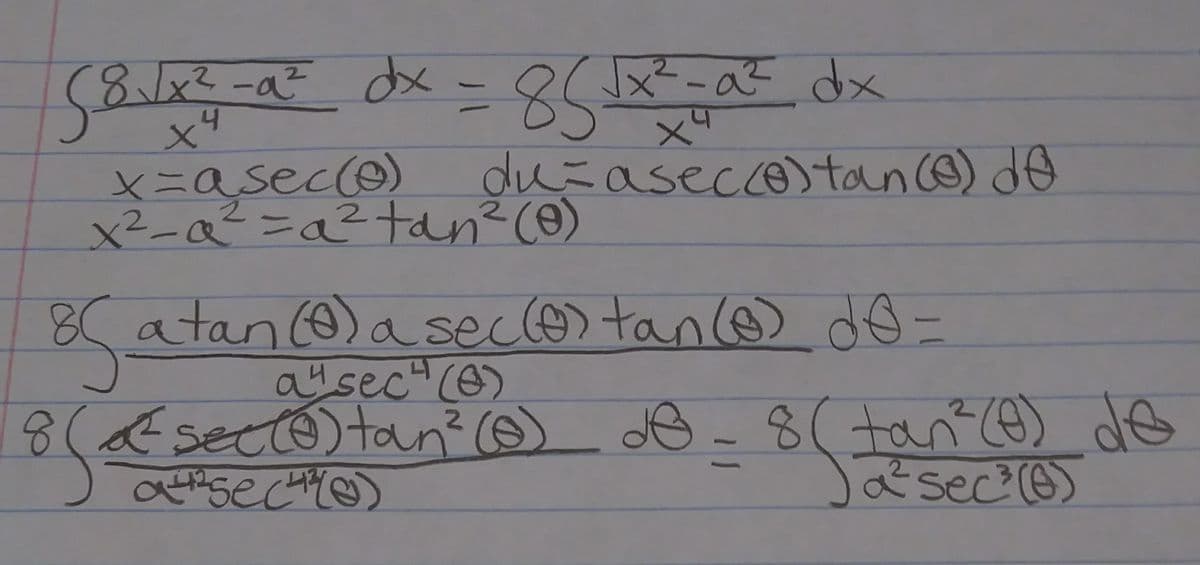 ∫ 8√(x² - a²) / x⁴ dx = 8∫ √(x² - a²) / x⁴ dx
x = a sec(θ)   du = a sec(θ) tan(θ) dθ
x² - a² = a² tan²(θ)
8∫ a tan(θ) a sec(θ) tan(θ) / a⁴ sec⁴(θ) dθ =
8∫ a² sec(θ) tan²(θ) / a⁴² sec⁴³(θ) dθ = 8∫ tan²(θ) / a² sec³(θ) dθ